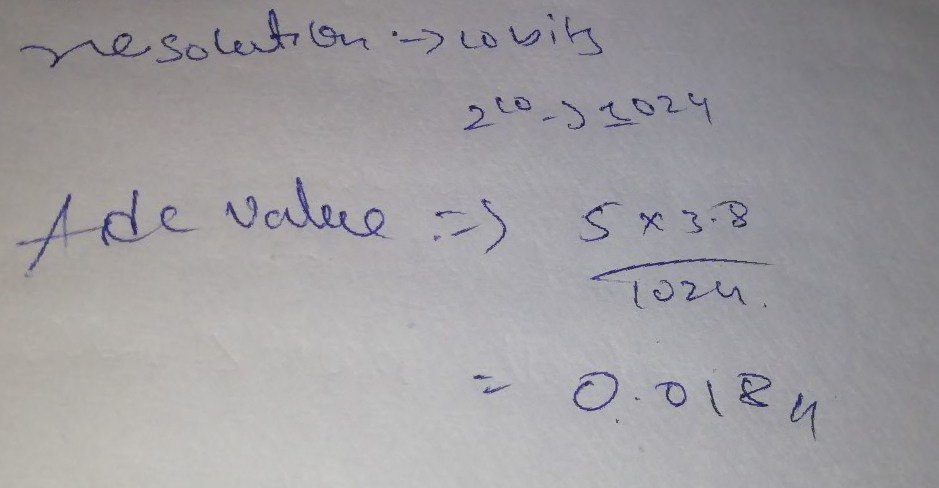 resolution -> 10 bits
2^10 -> 1024
Adc value => 5 x 3.8
1024.
= 0.0184